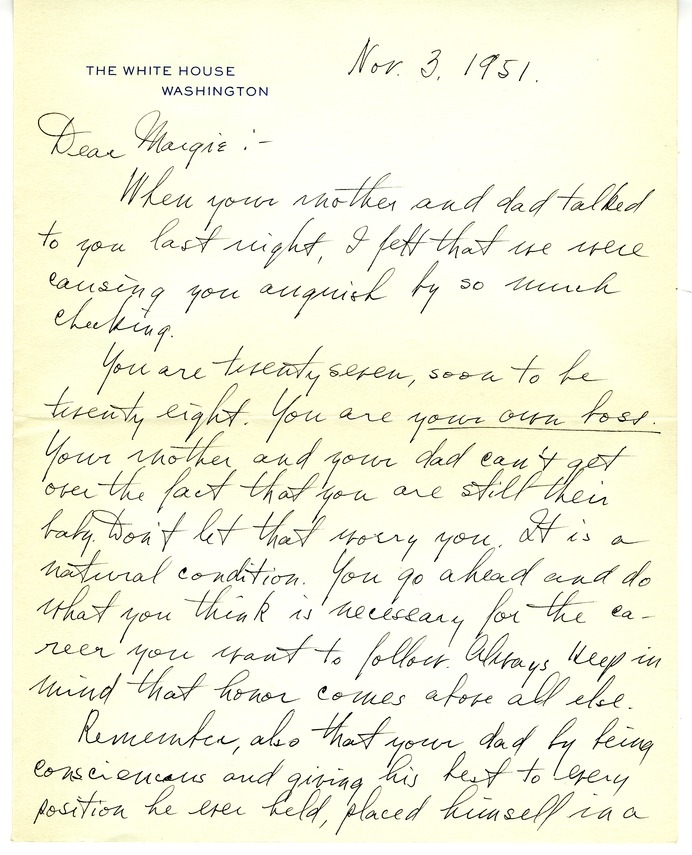 THE WHITE HOUSE
WASHINGTON
Nov. 3, 1951.
Dear Margie :-
When your mother and dad talked
to you last night, I felt that we were
causing you anguish by so much
checking.
You are twenty seven, soon to be
twenty eight. You are your own boss.
Your mother and your dad can't get
over the fact that you are still their
baby. Don't let that worry you. It is a
natural condition. You go ahead and do
what you think is necessary for the ca-
reer you want to follow. Always keep in
mind that honor comes above all else.
Remember, also that your dad by being
consciencous and giving his best to every
position he ever held, placed himself in a